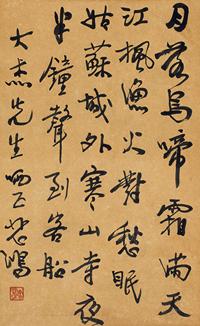 月落烏啼霜滿天
江楓漁火對愁眠
姑蘇城外寒山寺夜
半鐘聲到客船
大杰先生哂正 悲鴻